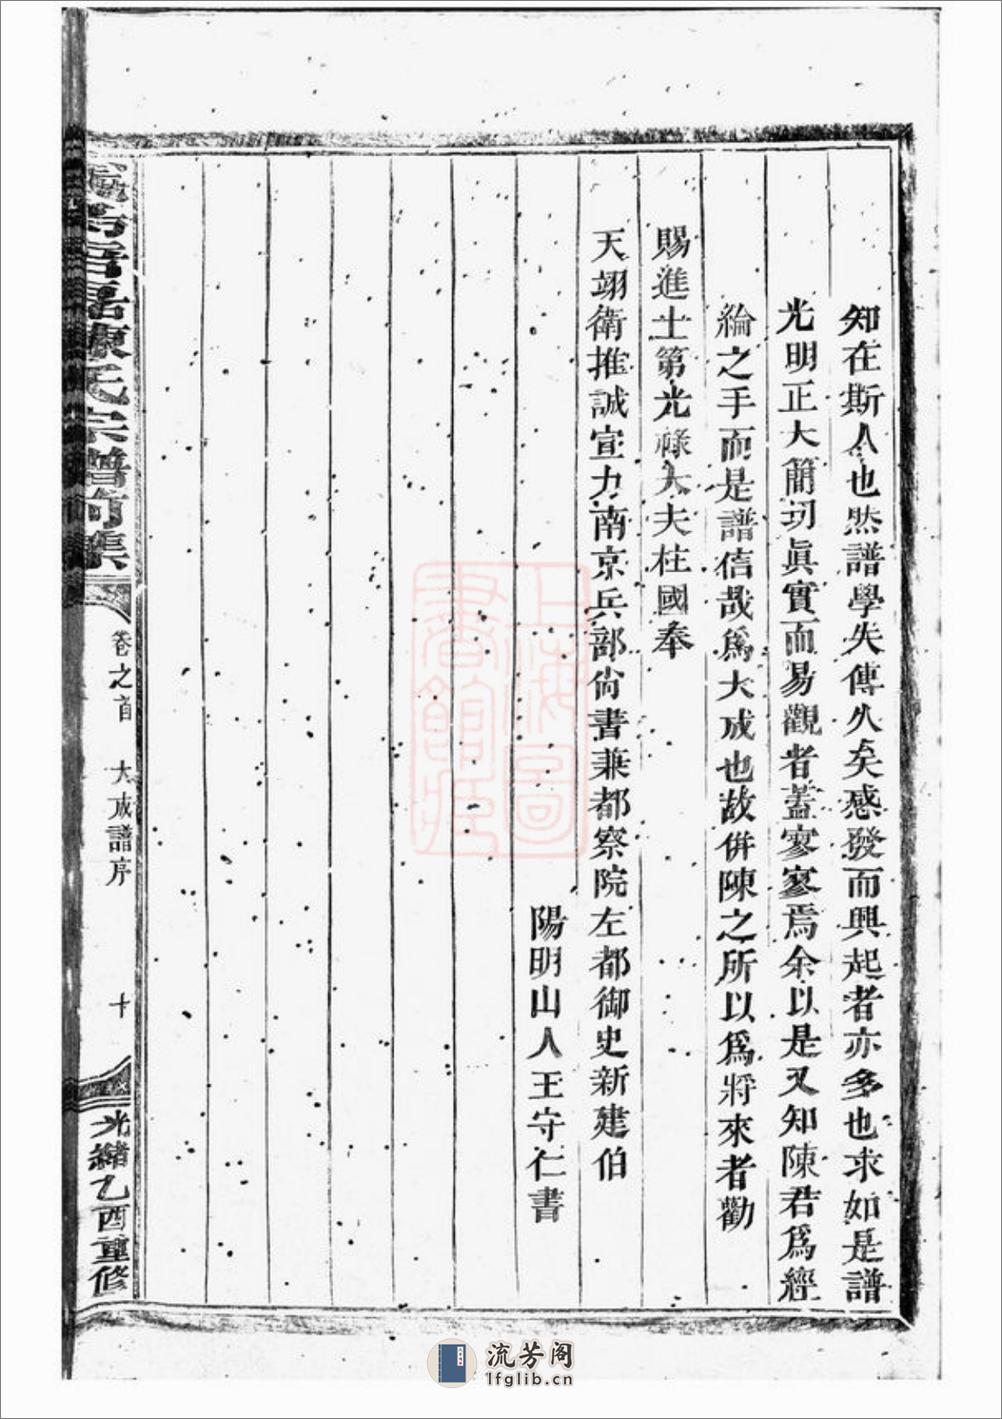 知在斯人也然譜學失傳久矣感發而興起者亦多也求如是譜
光明正大簡切眞實而易觀者蓋寥寥焉余以是又知陳君爲經
綸之手而是譜信哉爲大成也故併陳之所以爲將來者勸
賜進士第光祿大夫柱國奉
天翊衛推誠宣力南京兵部尙書兼都察院左都御史新建伯
陽明山人王守仁書
陳氏宗譜前集
卷之首
大成譜序
十
光緖乙酉重修
上海圖書館藏
流芳阁
lfglib.cn